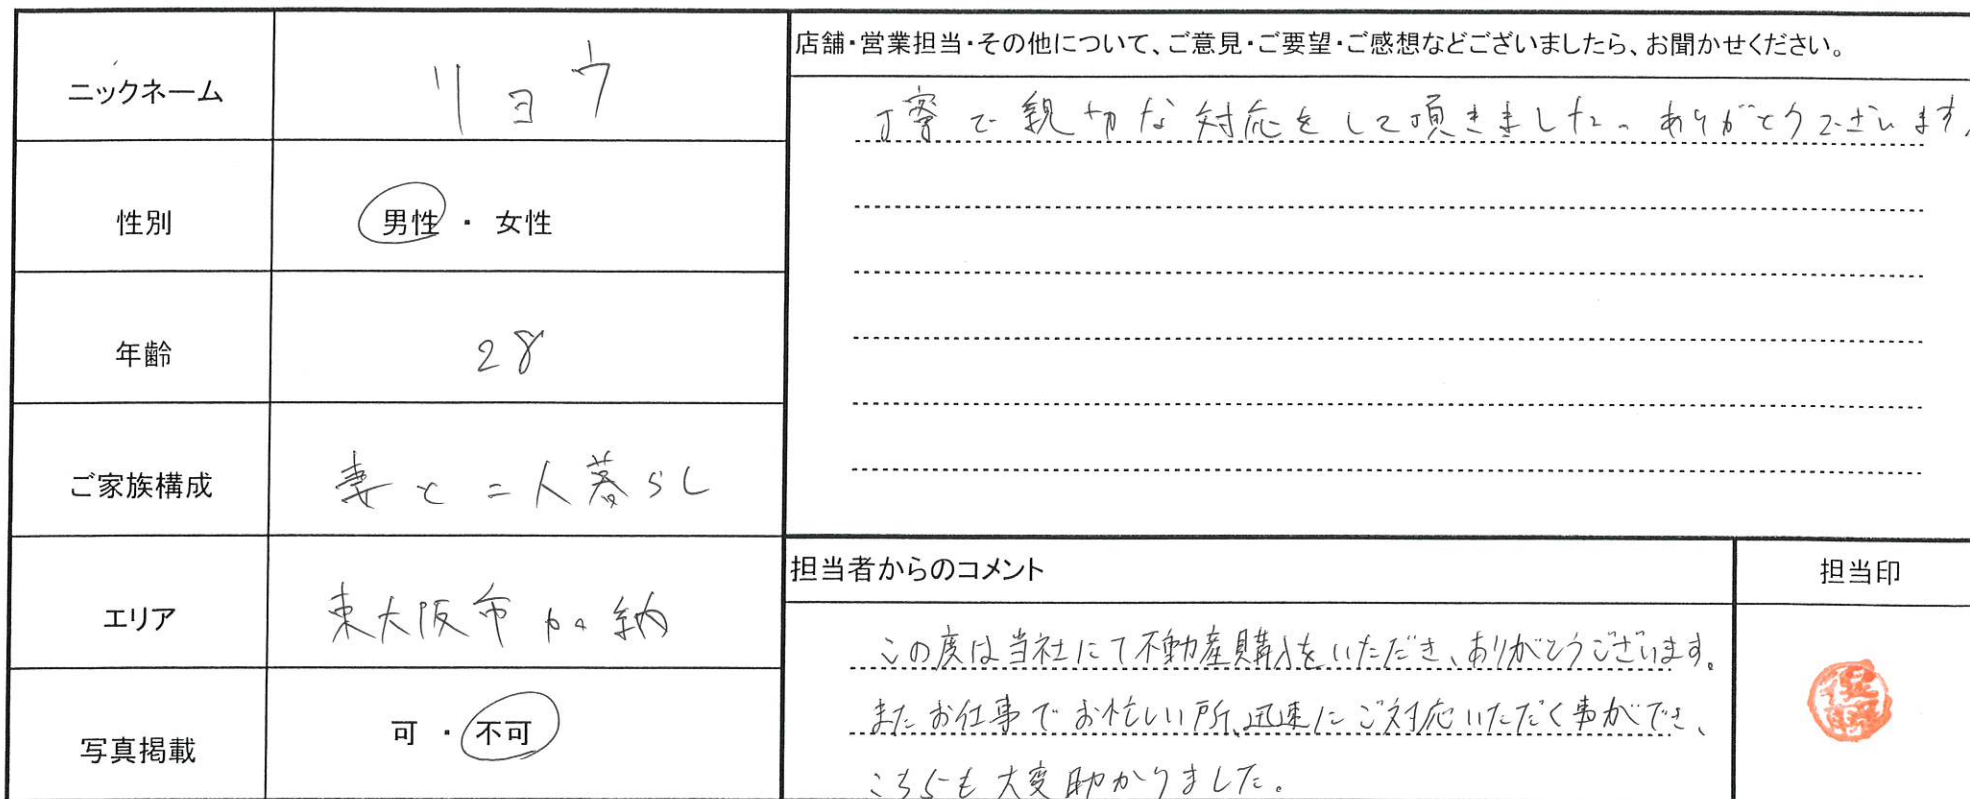 ニックネーム
リョウ
性別
男性 ・ 女性
年齢
28
ご家族構成
妻と二人暮らし
エリア
東大阪市加納
写真掲載
可 ・ 不可
店舗・営業担当・その他について、ご意見・ご要望・ご感想などございましたら、お聞かせください。
丁寧で親切な対応をして頂きました。ありがとうございます。
担当者からのコメント
この度は当社にて不動産購入をいただき、ありがとうございます。
またお仕事でお忙しい所、迅速にご対応いただく事ができ、
こちらも大変助かりました。
担当印